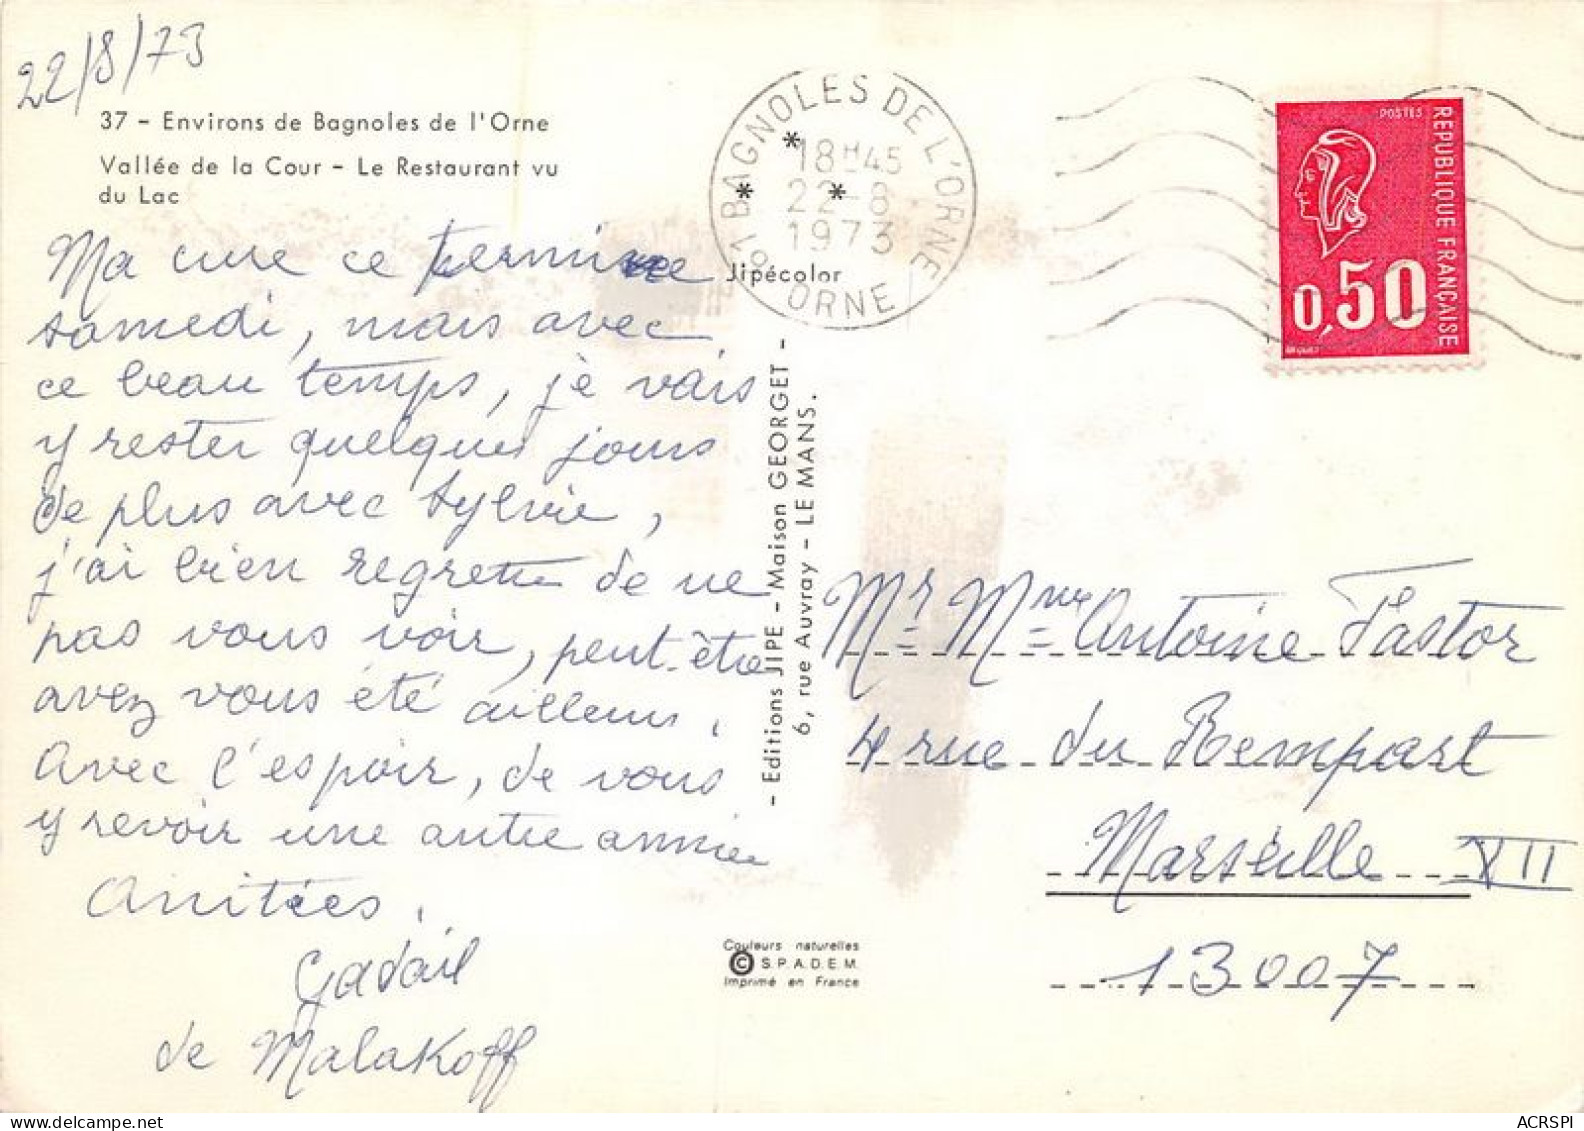 22/8/73
37 - Environs de Bagnoles de l'Orne
Vallée de la Cour - Le Restaurant vu
du Lac
Ma cure ce termine
samedi, mais avec
ce beau temps, je vais
y rester quelques jours
de plus avec Sylvie,
j'ai bien regretté de ne
pas vous voir, peut-être
avez vous été ailleurs.
Avec l'espoir, de vous
y revoir une autre année
Amitées.
Gadail
de Malakoff
Jipécolor
- Editions JIPE - Maison GEORGET -
6, rue Auvray - LE MANS.
Couleurs naturelles
© S.P.A.D.E.M.
Imprimé en France
61 BAGNOLES DE L'ORNE
18H45
22-8
1973
ORNE
POSTES
REPUBLIQUE FRANÇAISE
0,50
Mr Mme Antoine Pastor
4 rue du Rempart
Marseille VII
13007
ACRSPI